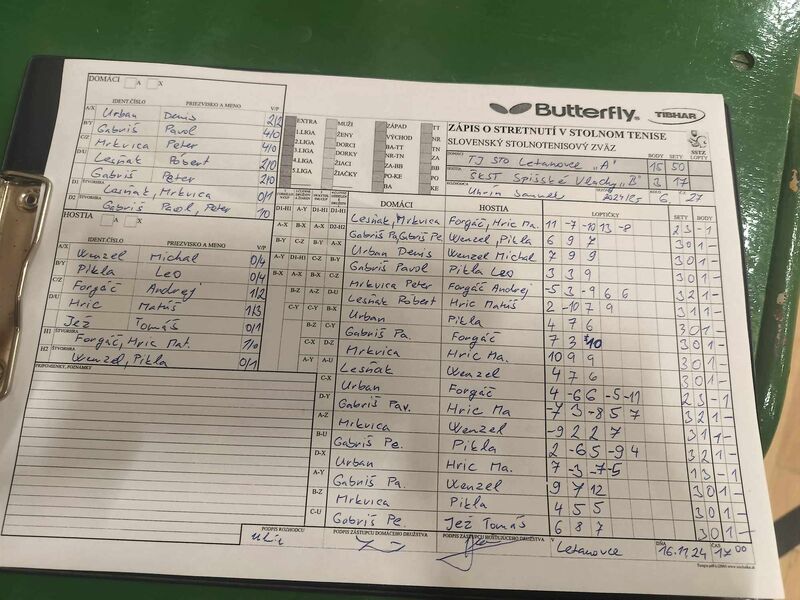 DOMÁCI A X
IDENT.ČÍSLO PRIEZVISKO A MENO V/P
A/X Urban Denis 2/2
B/Y Gabriš Pavol 4/0
C/Z Mrkvica Peter 4/0
D/U Lesňak Robert 2/0
Gabriš Peter 2/0
D1 ŠTVORHRA Lesňak, Mrkvica 0/1
D2 ŠTVORHRA Gabriš Pavol, Peter 1/0
HOSTIA A X
IDENT.ČÍSLO PRIEZVISKO A MENO V/P
A/X Wenzel Michal 0/4
B/Y Pikla Leo 0/4
C/Z Forgáč Andrej 1/2
D/U Hric Matúš 1/3
Jež Tomáš 0/1
H1 ŠTVORHRA Forgáč, Hric Mat. 1/0
H2 ŠTVORHRA Wenzel, Pikla 0/1
PRIPOMIENKY, POZNÁMKY
Butterfly TIBHAR
ZÁPIS O STRETNUTÍ V STOLNOM TENISE
SLOVENSKÝ STOLNOTENISOVÝ ZVÄZ
SSTZ
EXTRA MUŽI ZÁPAD TT
1.LIGA ŽENY VÝCHOD NR
2.LIGA DORCI BA-TT ZA
3.LIGA DORKY NR-TN BB
4.LIGA ŽIACI ZA-BB PO
5.LIGA ŽIAČKY PO-KE KE
BA
DOMÁCI TJ STO Letanovce "A" BODY 15 SETY 50 LOPTY
HOSTIA ŠKST Spišské Vlachy "B" 3 17
ROZHODCA Uhrin Samuel 2024/25 KOLO 6. 27
DOMÁCI HOSTIA LOPTIČKY SETY BODY
Lesňak, Mrkvica Forgáč, Hric Ma. 11 -7 -10 13 -8 2 3 - 1
Gabriš Pa, Gabriš Pe Wenzel, Pikla 6 9 7 3 0 1 -
Urban Denis Wenzel Michal 7 9 9 3 0 1 -
Gabriš Pavol Pikla Leo 3 3 9 3 0 1 -
Mrkvica Peter Forgáč Andrej -5 3 -9 6 6 3 2 1 -
Lesňak Robert Hric Matúš 2 -10 7 9 3 1 1 -
Urban Pikla 4 7 6 3 0 1 -
Gabriš Pa. Forgáč 7 3 10 3 0 1 -
Mrkvica Hric Ma. 10 9 9 3 0 1 -
Lesňak Wenzel 4 7 6 3 0 1 -
Urban Forgáč 4 -6 6 -5 -11 2 3 - 1
Gabriš Pav. Hric Ma -7 3 -8 5 7 3 2 1 -
Mrkvica Wenzel -9 2 2 7 3 1 1 -
Gabriš Pe. Pikla 2 -6 5 -9 4 3 2 1 -
Urban Hric Ma. 7 -3 -7 -5 1 3 - 1
Gabriš Pa. Wenzel 9 7 12 3 0 1 -
Mrkvica Pikla 4 5 5 3 0 1 -
Gabriš Pe. Jež Tomáš 6 8 7 3 0 1 -
PODPIS ROZHODCU PODPIS ZÁSTUPCU DOMÁCEHO DRUŽSTVA PODPIS ZÁSTUPCU HOSŤUJÚCEHO DRUŽSTVA V Letanovce DŇA 16.11.24 ČAS 17 00